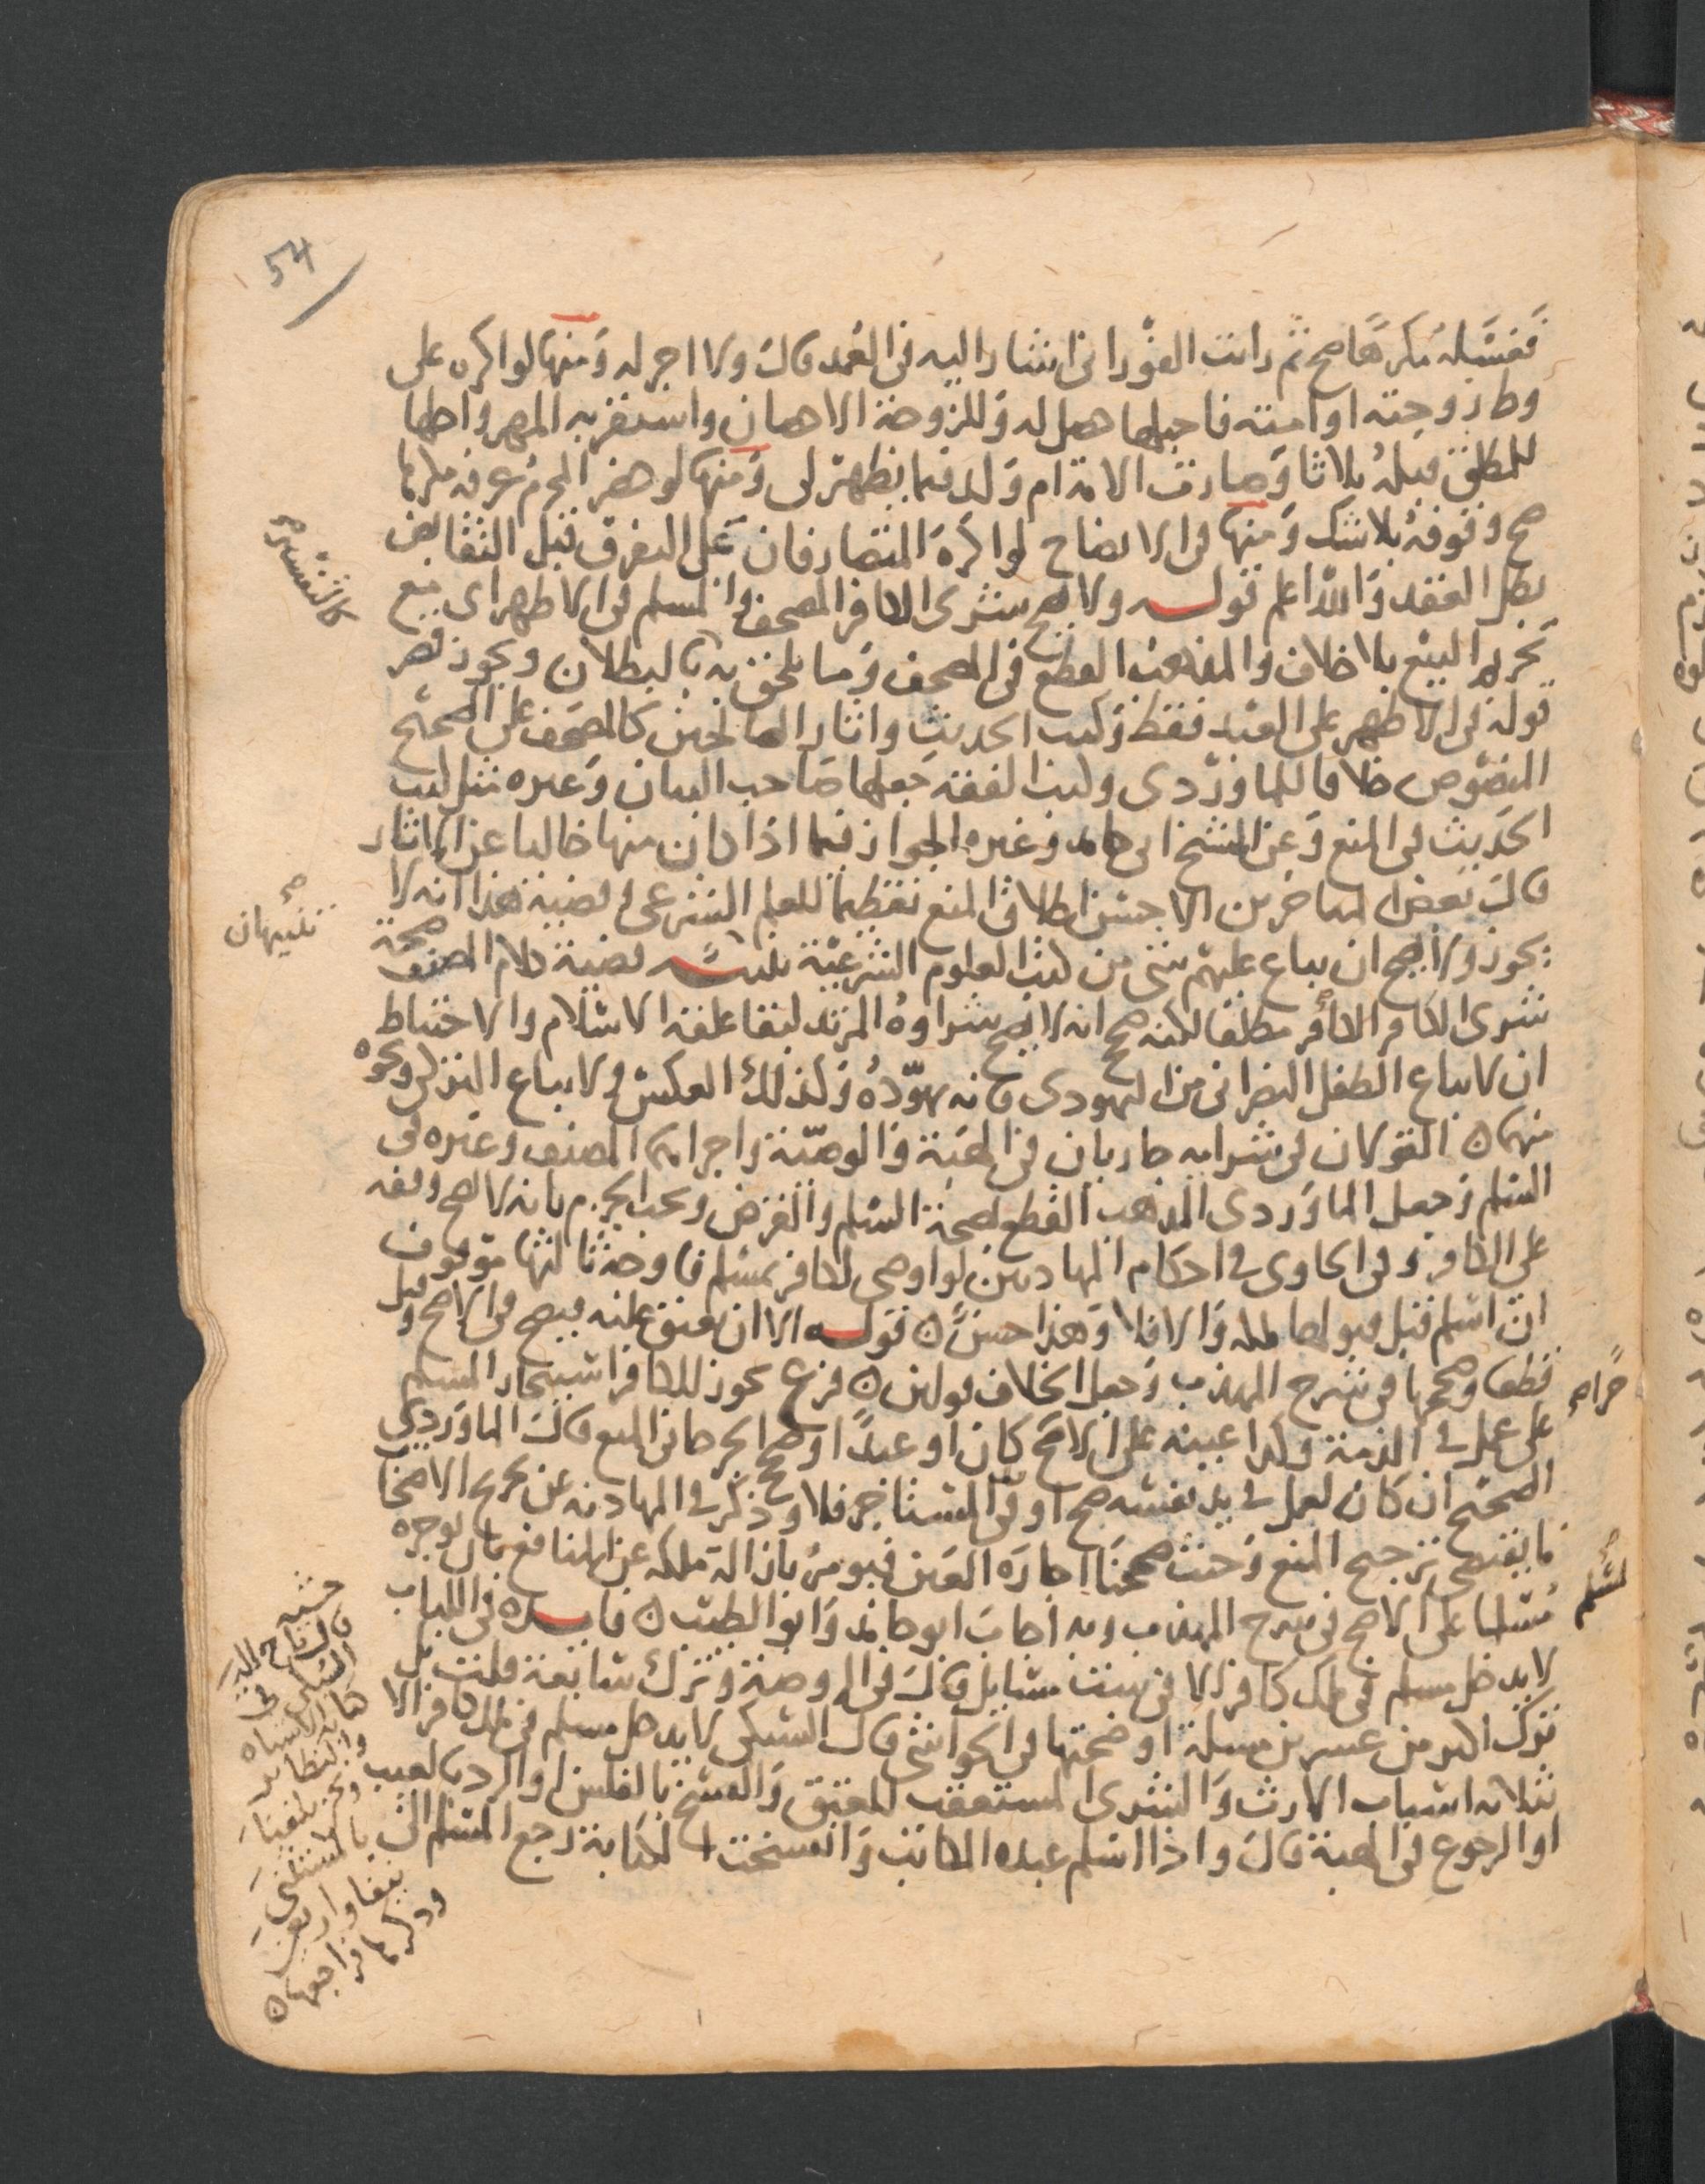 54
فغسله مكرها صح ثم رايت الفوراني اشار اليه في العمد قال ولا اجر له ومنها لو اكره على
وطء زوجته او امته فاحبلها هل له وللزوجة الاحصان واستقر به المهر واحلها
للمطلق قبله ثلاثا وصارت الامة ام ولد فيما يظهر لي ومنها لو حضر المحرم عرفة مكرها
صح وقوفه بلا شك ومنها في الايضاح لو اكره المتصارفان على التفرق قبل التقابض
بطل العقد والله اعلم قوله ولا يصح شرى الكافر المصحف والمسلم في الاظهر اي مع
تحريم البيع بلا خلاف والمذهب القطع في المصحف وما يلحق به بالبطلان ويجوز قصر
قوله في الاظهر على العبد فقط وكتب الحديث واثار الصالحين كالمصحف على الصحيح
المنصوص خلافا للماوردي وكتب الفقه جعلها صاحب البيان وغيره مثل كتب
الحديث في المنع وعن الشيخ ابي حامد وغيره الجواز فيما اذا كان منها خاليا عن الاثار
قال بعض المتاخرين الاحسن اطلاق المنع تعظيما للعلم الشرعي وقضية هذا انه لا
يجوز ولا يصح ان يباع عليهم شي من كتب العلوم الشرعية تنبيه قضية كلام المصنف صحة
شرى الكافر الكافر مطلقا لكنه صحح انه لا يصح شراوه المرتد لبقا علقة الاسلام والاحتياط
ان لا يباع الطفل النصراني من اليهودي فانه يهوده وكذلك العكس ولا يباع التركي ونحوه
منهما ه القولان في شرايه جاريان في الهبة والوصية واجراهما المصنف وغيره في
السلم وجعل الماوردي المذهب القطع بصحة السلم والقرض ويجب الجزم بانه لا يصح وقفه
على الكافر وفي الحاوي في احكام المهادنين لو اوصى لكافر بمسلم فاوجه ثالثها موقوف
ان اسلم قبل قبولها ملكه والا فلا وهذا حسن ه قوله الا ان يعتق عليه فيصح في الاصح وقيل
قطعا وصححها في شرح المهذب وجعل الخلاف قولين ه فرع يجوز للكافر استيجار المسلم
على عمل في الذمة وكذا عينه على الاصح كان او عبدا وصحح الجرجاني المنع قال الماوردي
الصحيح ان كان يعمل في يد نفسه صح او في يد المستاجر فلا وذكر في المهادنة عن تخريج الاصحاب
ما يقتضي ترجيح المنع وحيث صححنا اجارة العين فيومر بازالة ملكه عن المنافع بان يوجره
مسلما على الاصح في شرح المهذب وبه اجاب ابو حامد وابو الطيب ه فايدة في اللباب
لا يدخل مسلم في ملك كافر الا في ست مسايل قال في الروضة وترك سابعة قلت بل
ترك اكثر من عشرين مسلة اوضحتها في الحواشي قال السبكي لا يدخل مسلم في ملك كافر الا
بثلاثة اسباب الارث والشرى المستعقب للعتق والفسخ بالفلس او الرد بالعيب
او الرجوع في الهبة قال واذا اسلم عبده المكاتب وانفسخت الكتابة رجع المسلم الى
كالتفسير صح
تنبيهان صح
حرا صح
لمسلم صح
حشية
قال تاج الدين
السبكي في
كتاب الاشباه
والنظاير